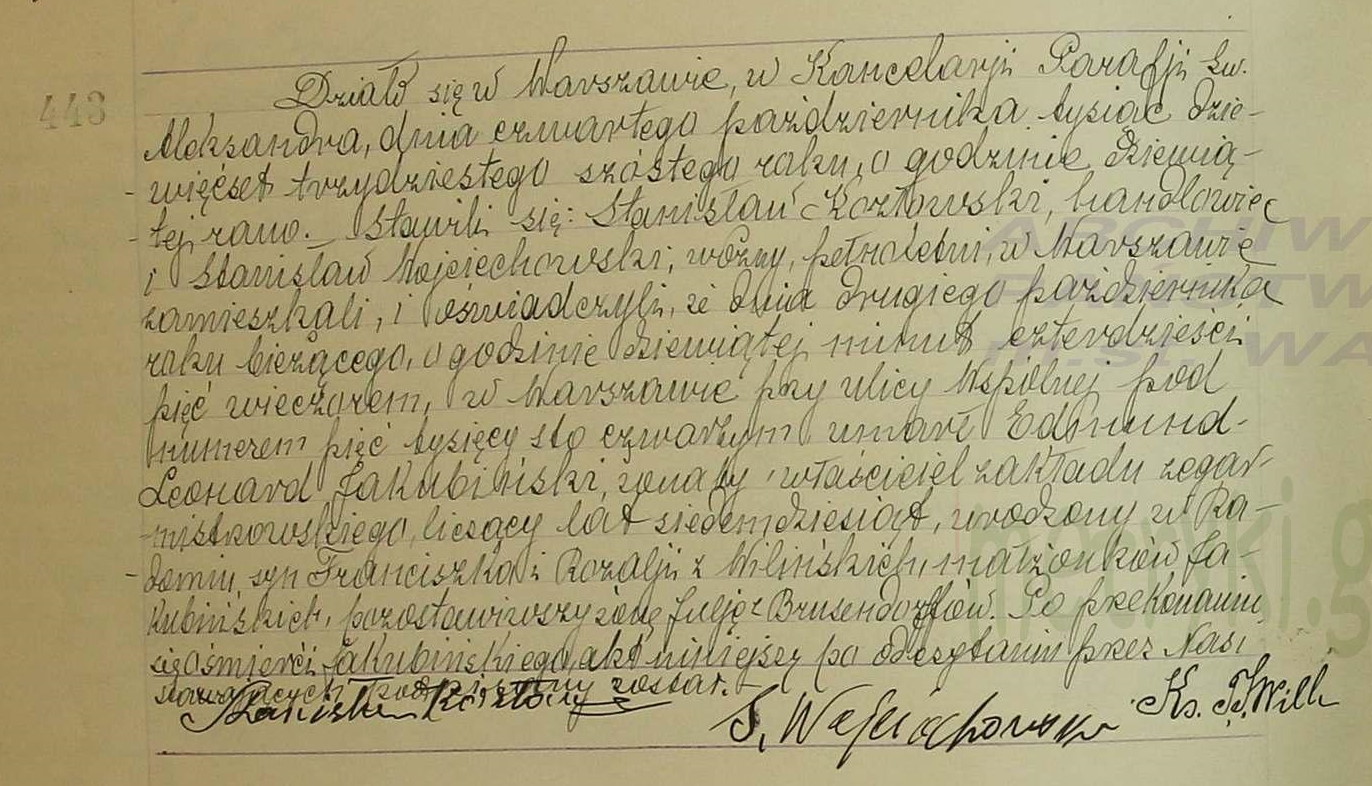 443
Działo się w Warszawie, w Kancelarji Parafji Św.
Aleksandra, dnia czwartego października tysiąc dzie-
więćset trzydziestego szóstego roku, o godzinie dziewią-
tej rano. Stawili się: Stanisław Kozłowski, handlowiec
i Stanisław Wojciechowski, woźny, pełnoletni, w Warszawie
zamieszkali, i oświadczyli, że dnia drugiego października
roku bieżącego, o godzinie dziewiątej minut czterdzieści
pięć wieczorem, w Warszawie przy ulicy Wspólnej pod
numerem pięć tysięcy sto czwartym umarł Edmund-
Leonard Jakubiński, żonaty właściciel zakładu zegar-
mistrzowskiego, liczący lat siedemdziesiąt, urodzony w Ra-
domiu, syn Franciszka i Rozalji z Wilińskich, małżonków Ja-
kubińskich, pozostawiwszy żonę Julję z Brusendorffów. Po przekonaniu
się o śmierci Jakubińskiego, akt niniejszy po odczytaniu przez Nas i
stawających podpisany został.
S. Wojciechowski
Ks. T. Will
ARCHIW
PAŃSTW
m.st. WA
metryki.g